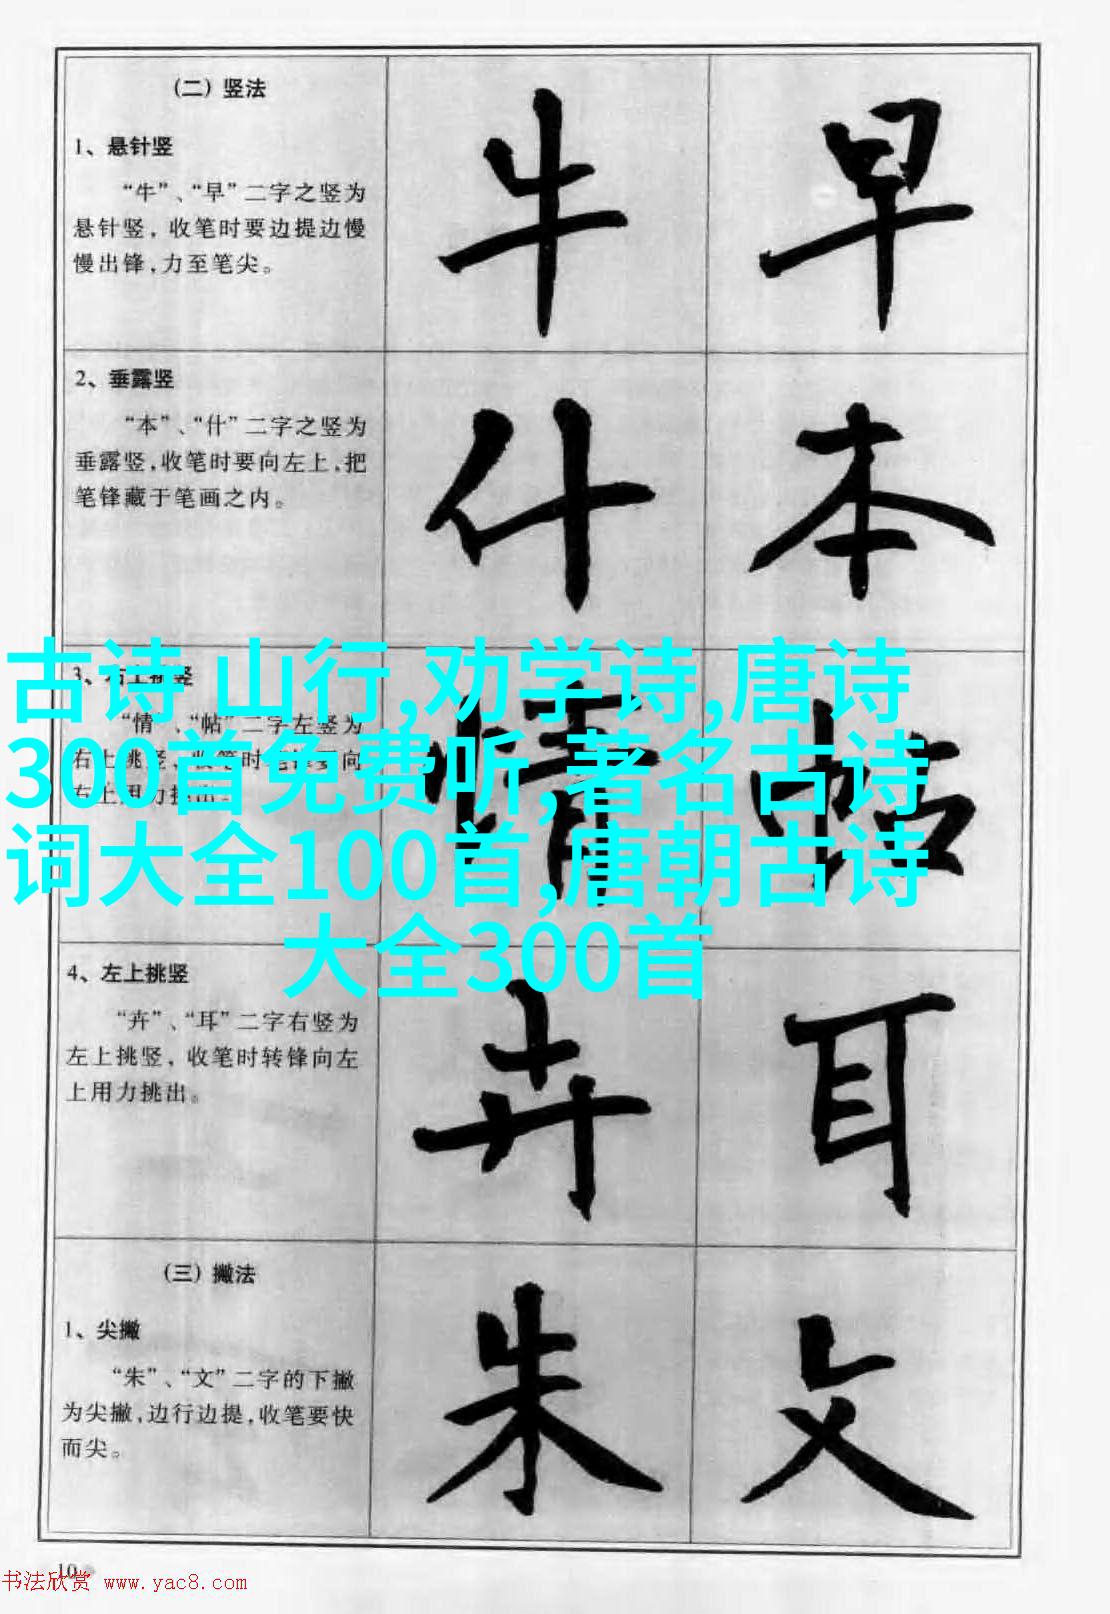 (二) 竖法
1、悬针竖
“牛”、“早”二字之竖为
悬针竖, 收笔时要边提边慢
慢出锋,力至笔尖。
牛 早
2、垂露竖
“本”、“什”二字之竖为
垂露竖,收笔时要向左上,把
笔锋藏于笔画之内。
什 本
古诗 山行,劝学诗,唐诗
300首免费听,著名古诗
词大全100首,唐朝古诗
大全300首
“情”、“帖”二字左竖为
情 帖
4、左上挑竖
“卉”、“耳”二字右竖为
左上挑竖, 收笔时转锋向左
上用力挑出。
卉 耳
(三) 撇法
1、尖撇
“朱”、“文”二字的下撇
为尖撇,边行边提,收笔要快
而尖。
朱 文
10
书法欣赏 www.yac8.com